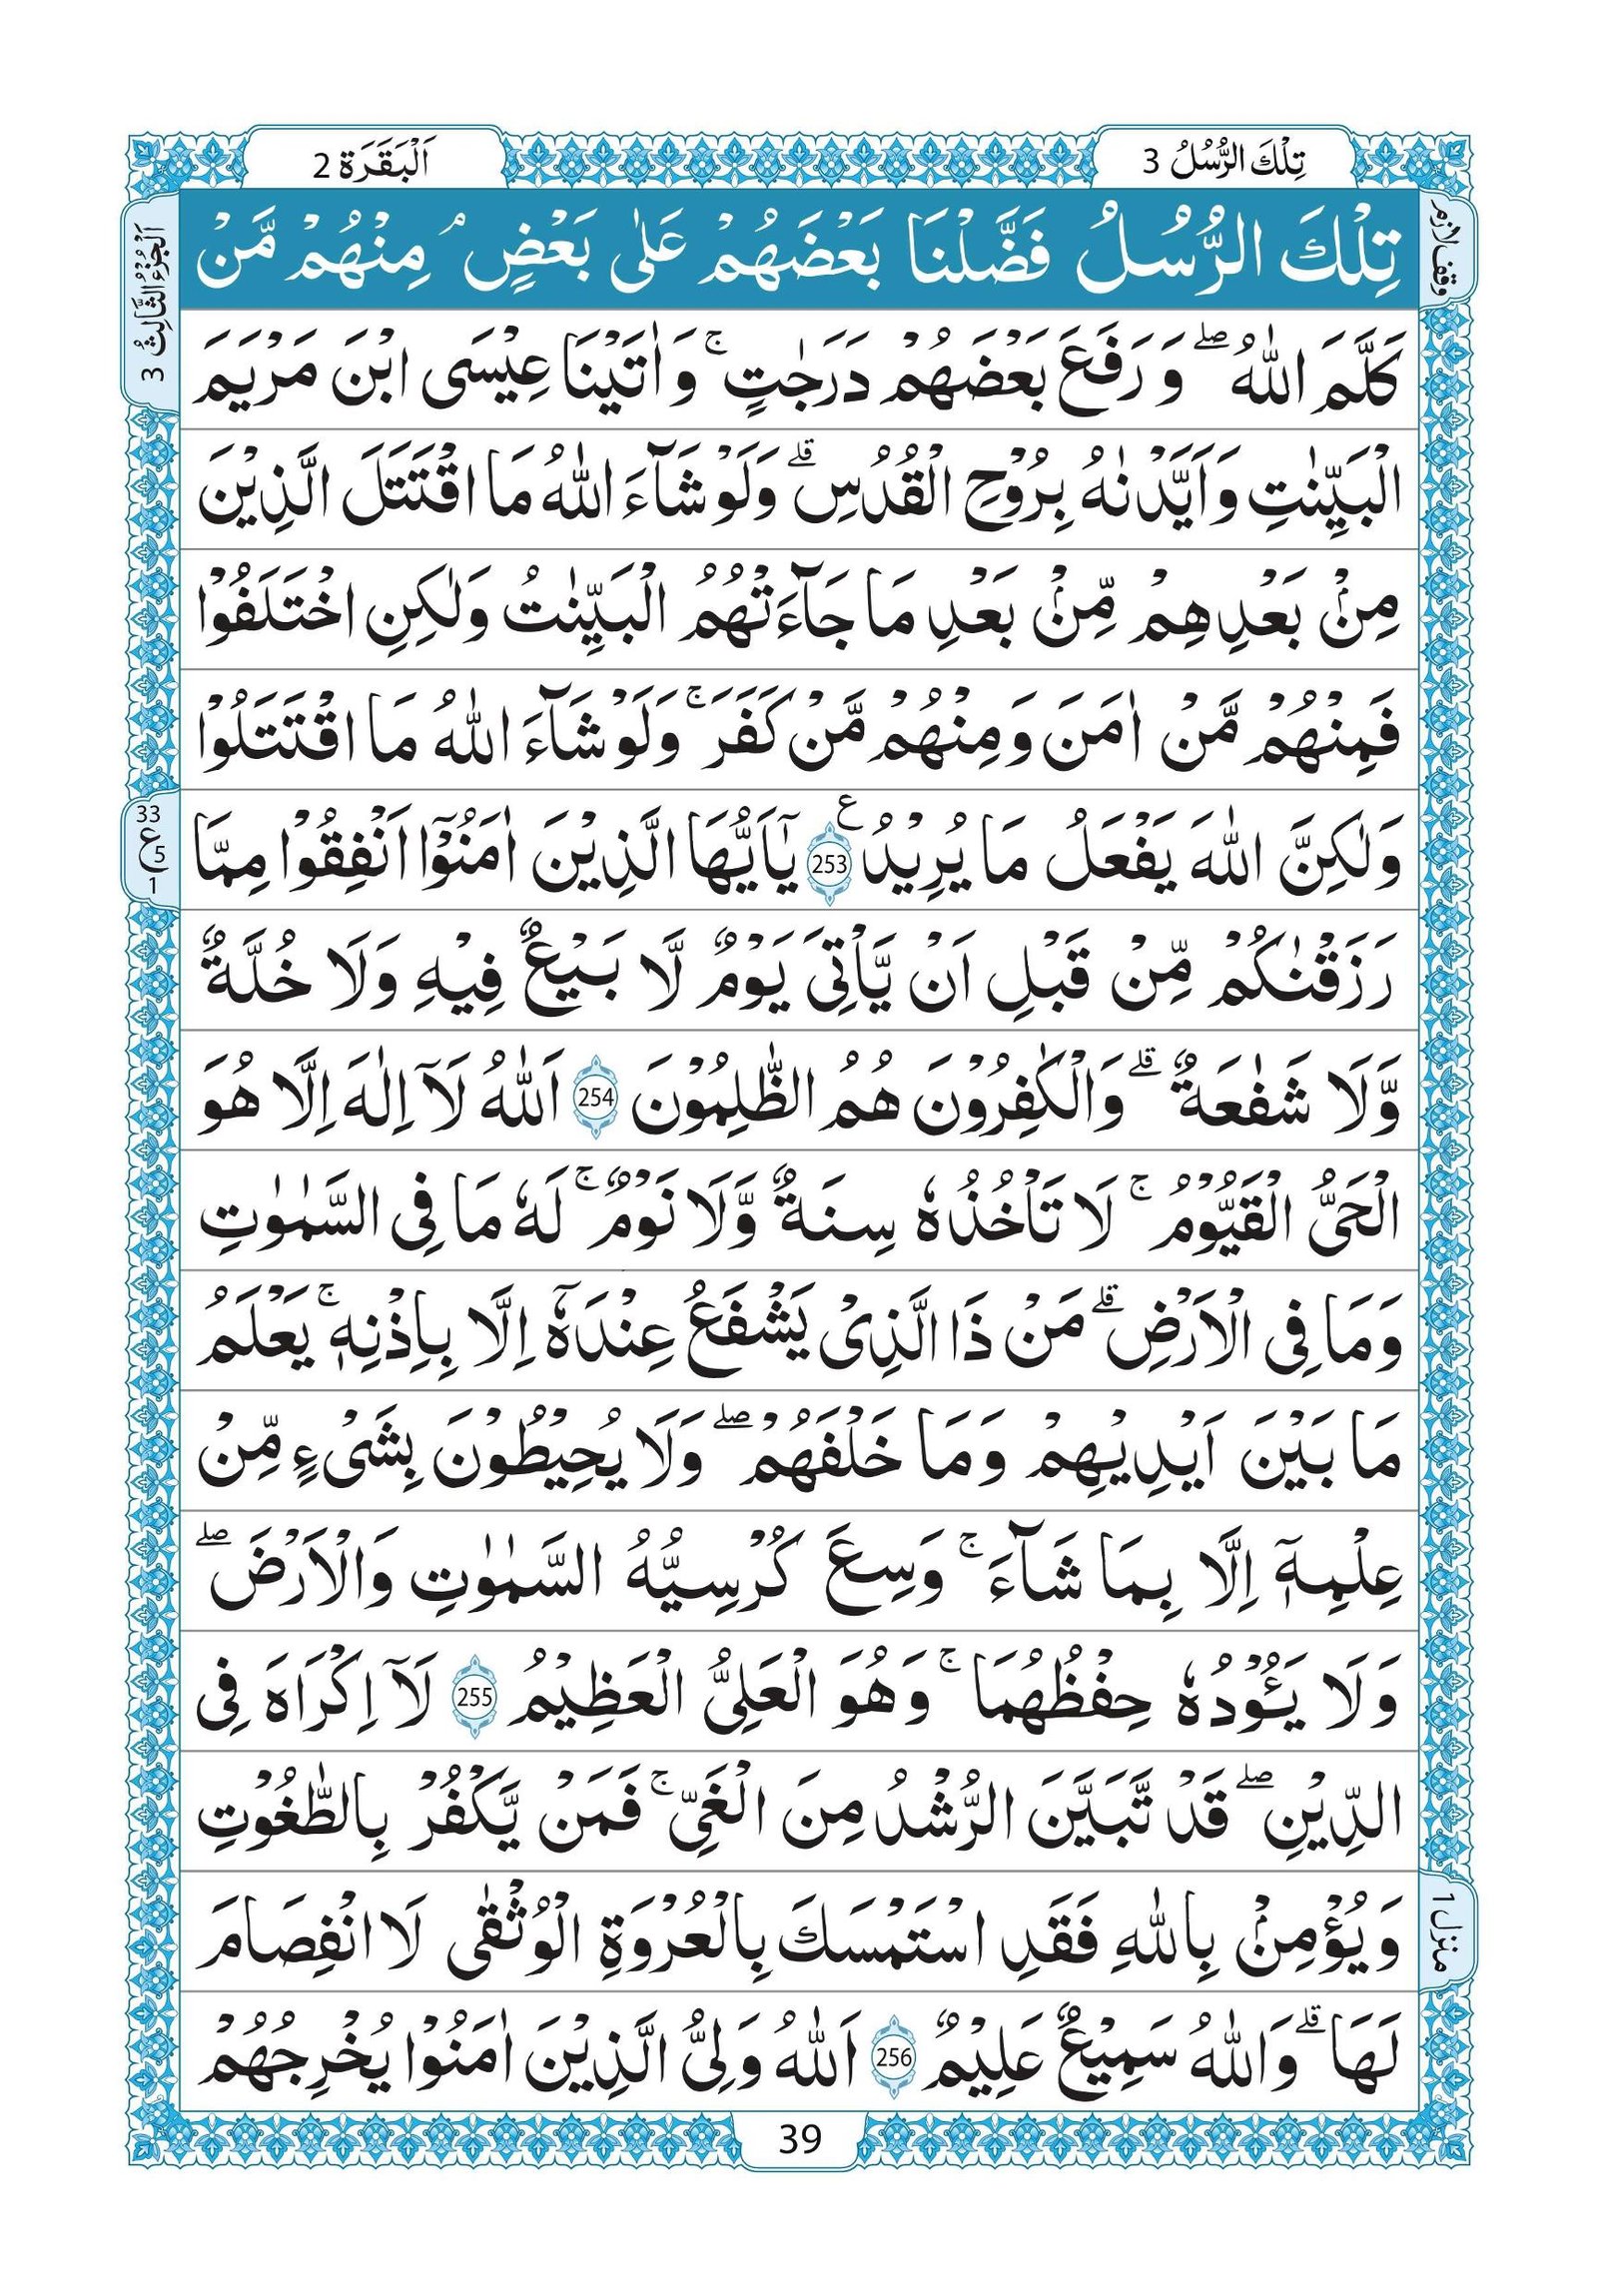 تِلْكَ الرُّسُلُ 3
اَلْبَقَرَة 2
وقف لازم
اَلْجُزْءُ الثَّالِثُ 3
تِلْكَ الرُّسُلُ فَضَّلْنَا بَعْضَهُمْ عَلٰى بَعْضٍ ۘ مِنْهُمْ مَّنْ
كَلَّمَ اللّٰهُ ۖ وَ رَفَعَ بَعْضَهُمْ دَرَجٰتٍ ۚ وَ اٰتَيْنَا عِيْسَى ابْنَ مَرْيَمَ
الْبَيِّنٰتِ وَ اَيَّدْنٰهُ بِرُوْحِ الْقُدُسِ ۗ وَلَوْ شَآءَ اللّٰهُ مَا اقْتَتَلَ الَّذِيْنَ
مِنْۢ بَعْدِهِمْ مِّنْۢ بَعْدِ مَا جَآءَتْهُمُ الْبَيِّنٰتُ وَلٰكِنِ اخْتَلَفُوْا
فَمِنْهُمْ مَّنْ اٰمَنَ وَمِنْهُمْ مَّنْ كَفَرَ ۚ وَلَوْ شَآءَ اللّٰهُ مَا اقْتَتَلُوْا
وَلٰكِنَّ اللّٰهَ يَفْعَلُ مَا يُرِيْدُ ع 253 يٰٓاَيُّهَا الَّذِيْنَ اٰمَنُوْٓا اَنْفِقُوْا مِمَّا
33 ع 5 1
رَزَقْنٰكُمْ مِّنْ قَبْلِ اَنْ يَّاْتِىَ يَوْمٌ لَّا بَيْعٌ فِيْهِ وَلَا خُلَّةٌ
وَّلَا شَفٰعَةٌ ۗ وَالْكٰفِرُوْنَ هُمُ الظّٰلِمُوْنَ 254 اَللّٰهُ لَآ اِلٰهَ اِلَّا هُوَ
الْحَىُّ الْقَيُّوْمُ ۚ لَا تَاْخُذُهٗ سِنَةٌ وَّلَا نَوْمٌ ۚ لَهٗ مَا فِى السَّمٰوٰتِ
وَمَا فِى الْاَرْضِ ۗ مَنْ ذَا الَّذِىْ يَشْفَعُ عِنْدَهٗٓ اِلَّا بِاِذْنِهٖ ۚ يَعْلَمُ
مَا بَيْنَ اَيْدِيْهِمْ وَمَا خَلْفَهُمْ ۖ وَلَا يُحِيْطُوْنَ بِشَىْءٍ مِّنْ
عِلْمِهٖٓ اِلَّا بِمَا شَآءَ ۚ وَسِعَ كُرْسِيُّهُ السَّمٰوٰتِ وَالْاَرْضَ ۖ
وَلَا يَـُٔوْدُهٗ حِفْظُهُمَا ۚ وَهُوَ الْعَلِىُّ الْعَظِيْمُ 255 لَآ اِكْرَاهَ فِى
الدِّيْنِ ۖ قَدْ تَّبَيَّنَ الرُّشْدُ مِنَ الْغَىِّ ۚ فَمَنْ يَّكْفُرْ بِالطّٰغُوْتِ
وَيُؤْمِنْۢ بِاللّٰهِ فَقَدِ اسْتَمْسَكَ بِالْعُرْوَةِ الْوُثْقٰى لَا انْفِصَامَ
منزل 1
لَهَا ۗ وَاللّٰهُ سَمِيْعٌ عَلِيْمٌ 256 اَللّٰهُ وَلِىُّ الَّذِيْنَ اٰمَنُوْا يُخْرِجُهُمْ
39